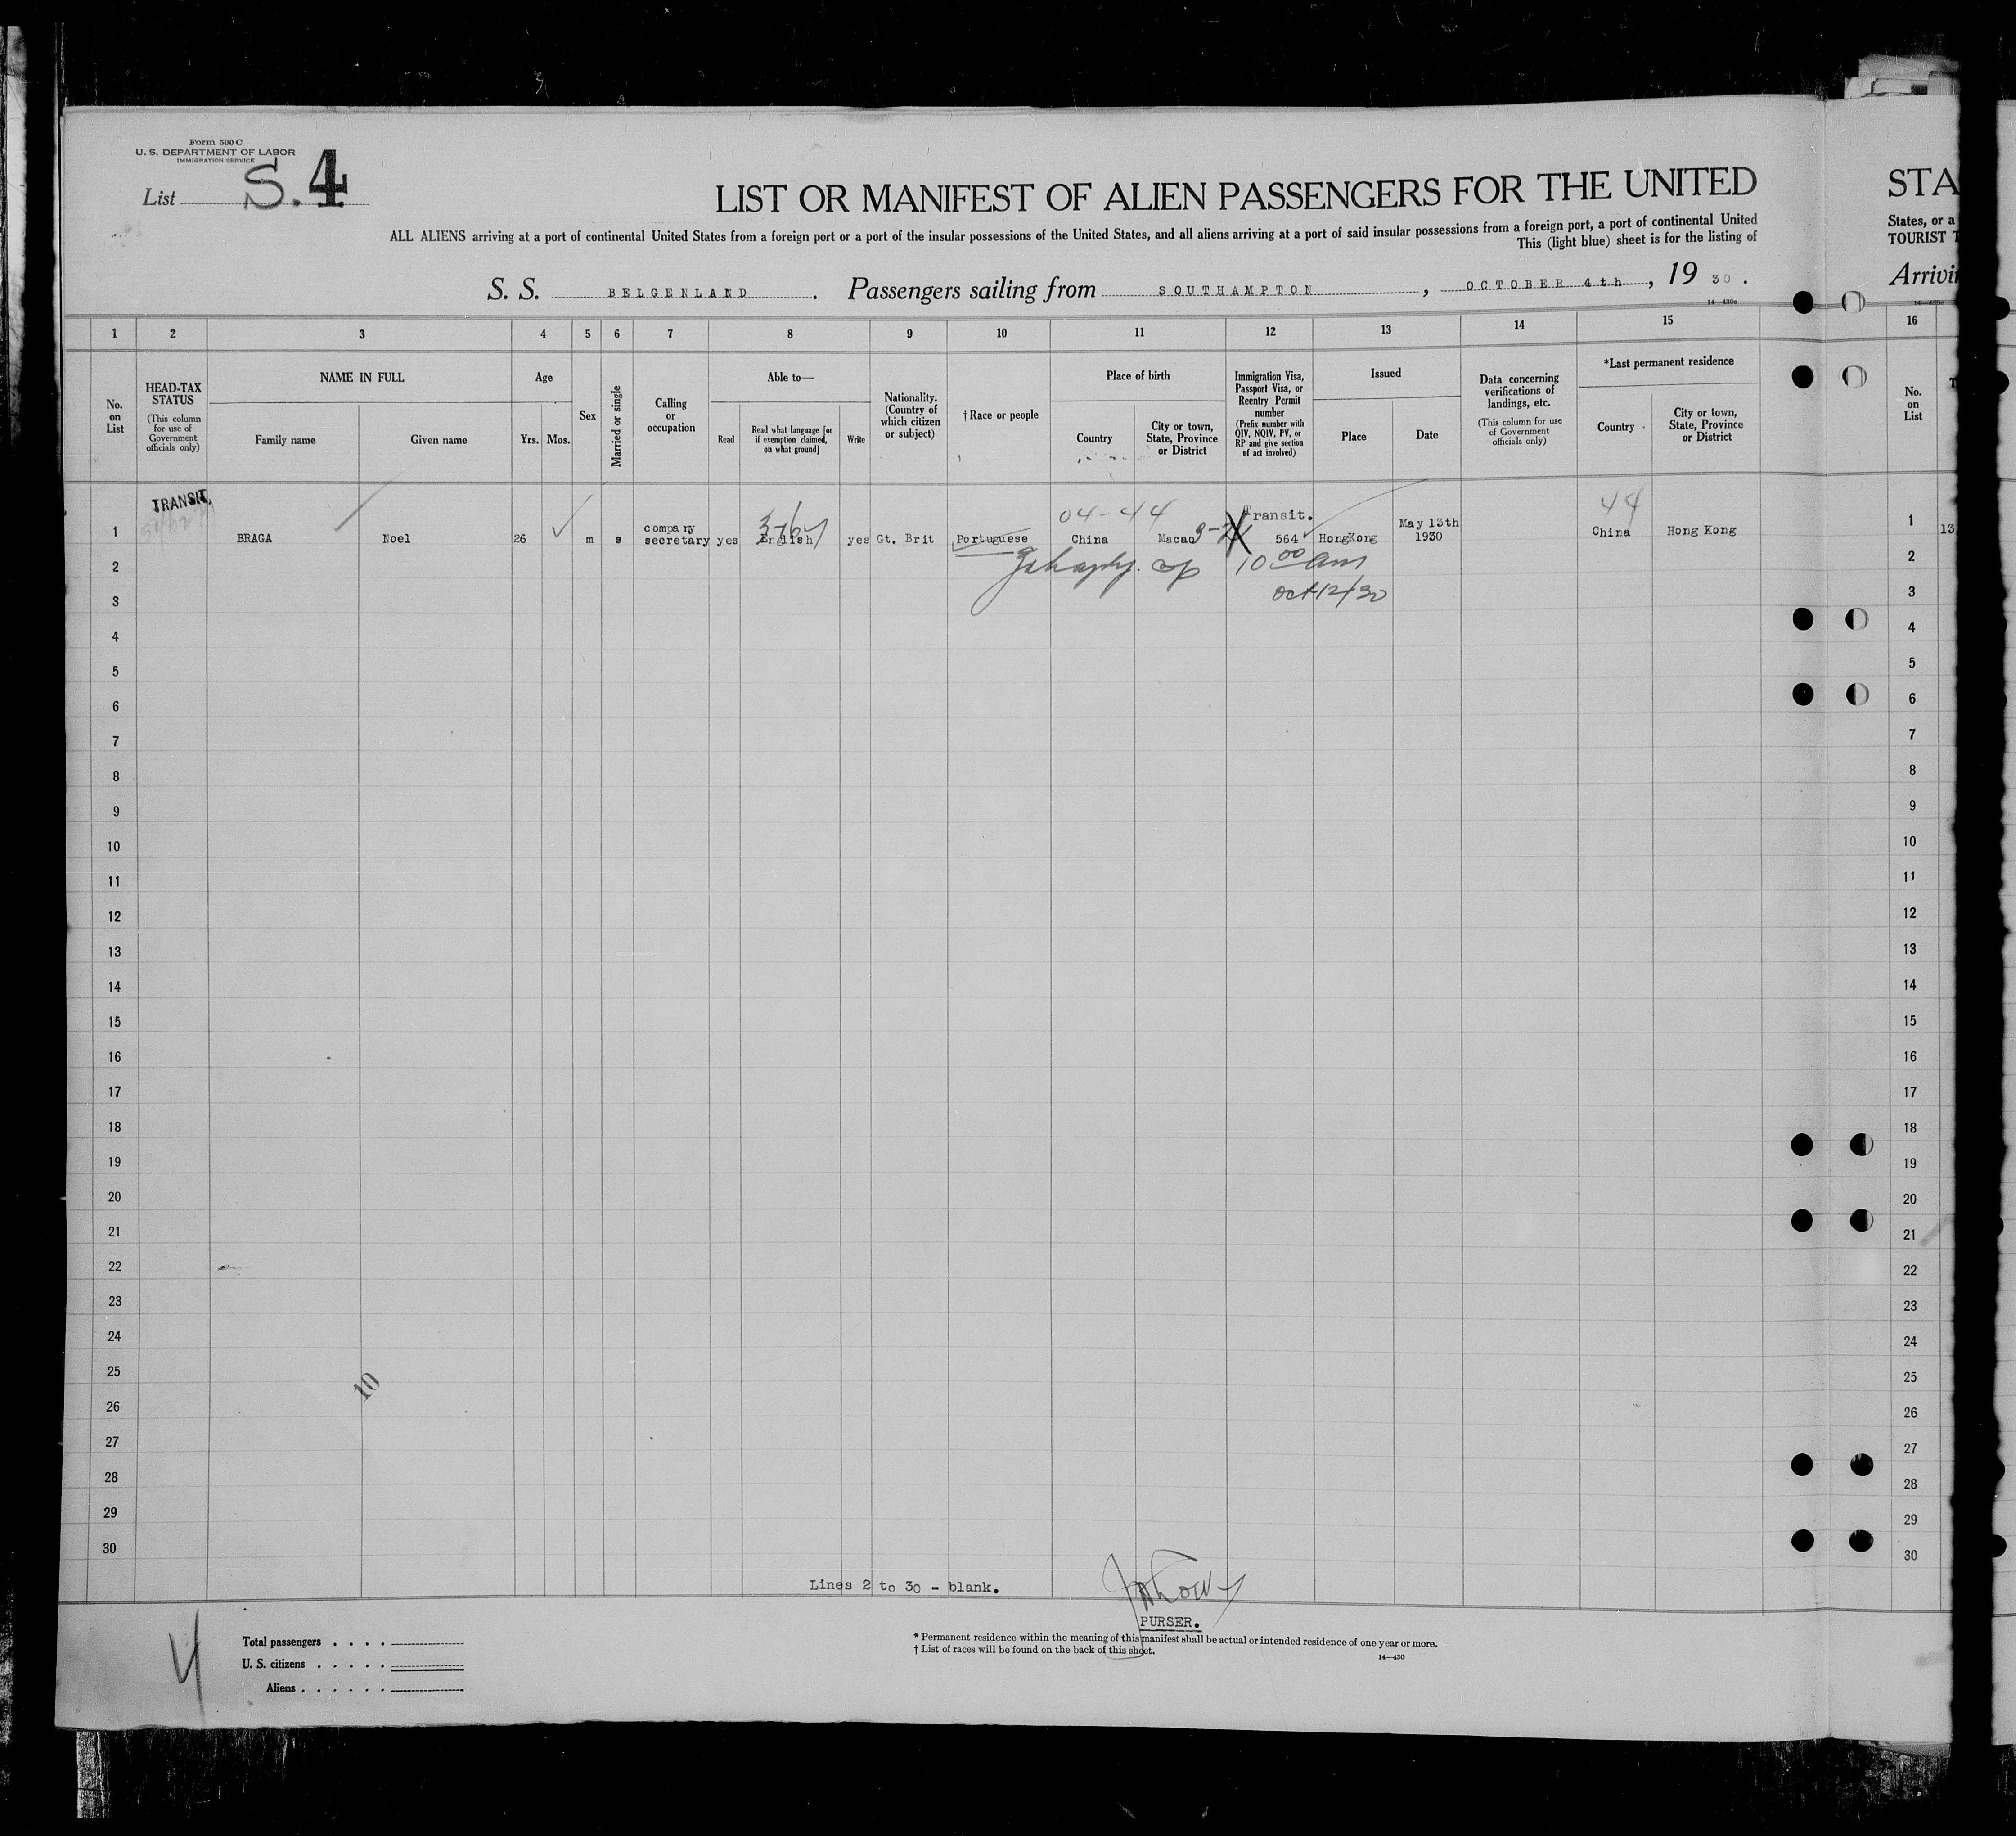 Form 500 C
U. S. DEPARTMENT OF LABOR
IMMIGRATION SERVICE
List S. 4
LIST OR MANIFEST OF ALIEN PASSENGERS FOR THE UNITED
ALL ALIENS arriving at a port of continental United States from a foreign port or a port of the insular possessions of the United States, and all aliens arriving at a port of said insular possessions from a foreign port, a port of continental United
This (light blue) sheet is for the listing of
S. S. BELGENLAND . Passengers sailing from SOUTHAMPTON , OCTOBER 4th , 19 30 .
14—430c
STA
States, or a
TOURIST T
Arrivin
1 2 3 4 5 6 7 8 9 10 11 12 13 14 15 16
No. on List
HEAD-TAX STATUS
(This column for use of Government officials only)
NAME IN FULL
Family name
Given name
Age
Yrs. Mos.
Sex
Married or single
Calling or occupation
Able to—
Read
Read what language [or if exemption claimed, on what ground]
Write
Nationality. (Country of which citizen or subject)
†Race or people
Place of birth
Country
City or town, State, Province or District
Immigration Visa, Passport Visa, or Reentry Permit number
(Prefix number with QIV, NQIV, PV, or RP and give section of act involved)
Issued
Place
Date
Data concerning verifications of landings, etc.
(This column for use of Government officials only)
*Last permanent residence
Country
City or town, State, Province or District
No. on List
TRANSIT
04-44
Transit.
44
1 BRAGA Noel 26 m s company secretary yes English yes Gt. Brit Portuguese China Macao 564 HongKong May 13th 1930 China Hong Kong 1 13
2 10 00 am 2
3 Oct 12/30 3
4 4
5 5
6 6
7 7
8 8
9 9
10 10
11 11
12 12
13 13
14 14
15 15
16 16
17 17
18 18
19 19
20 20
21 21
22 22
23 23
24 24
25 25
10
26 26
27 27
28 28
29 29
30 30
Lines 2 to 30 - blank.
PURSER.
4
Total passengers . . . .
U. S. citizens . . . . .
Aliens . . . . . .
* Permanent residence within the meaning of this manifest shall be actual or intended residence of one year or more.
† List of races will be found on the back of this sheet.
14—430